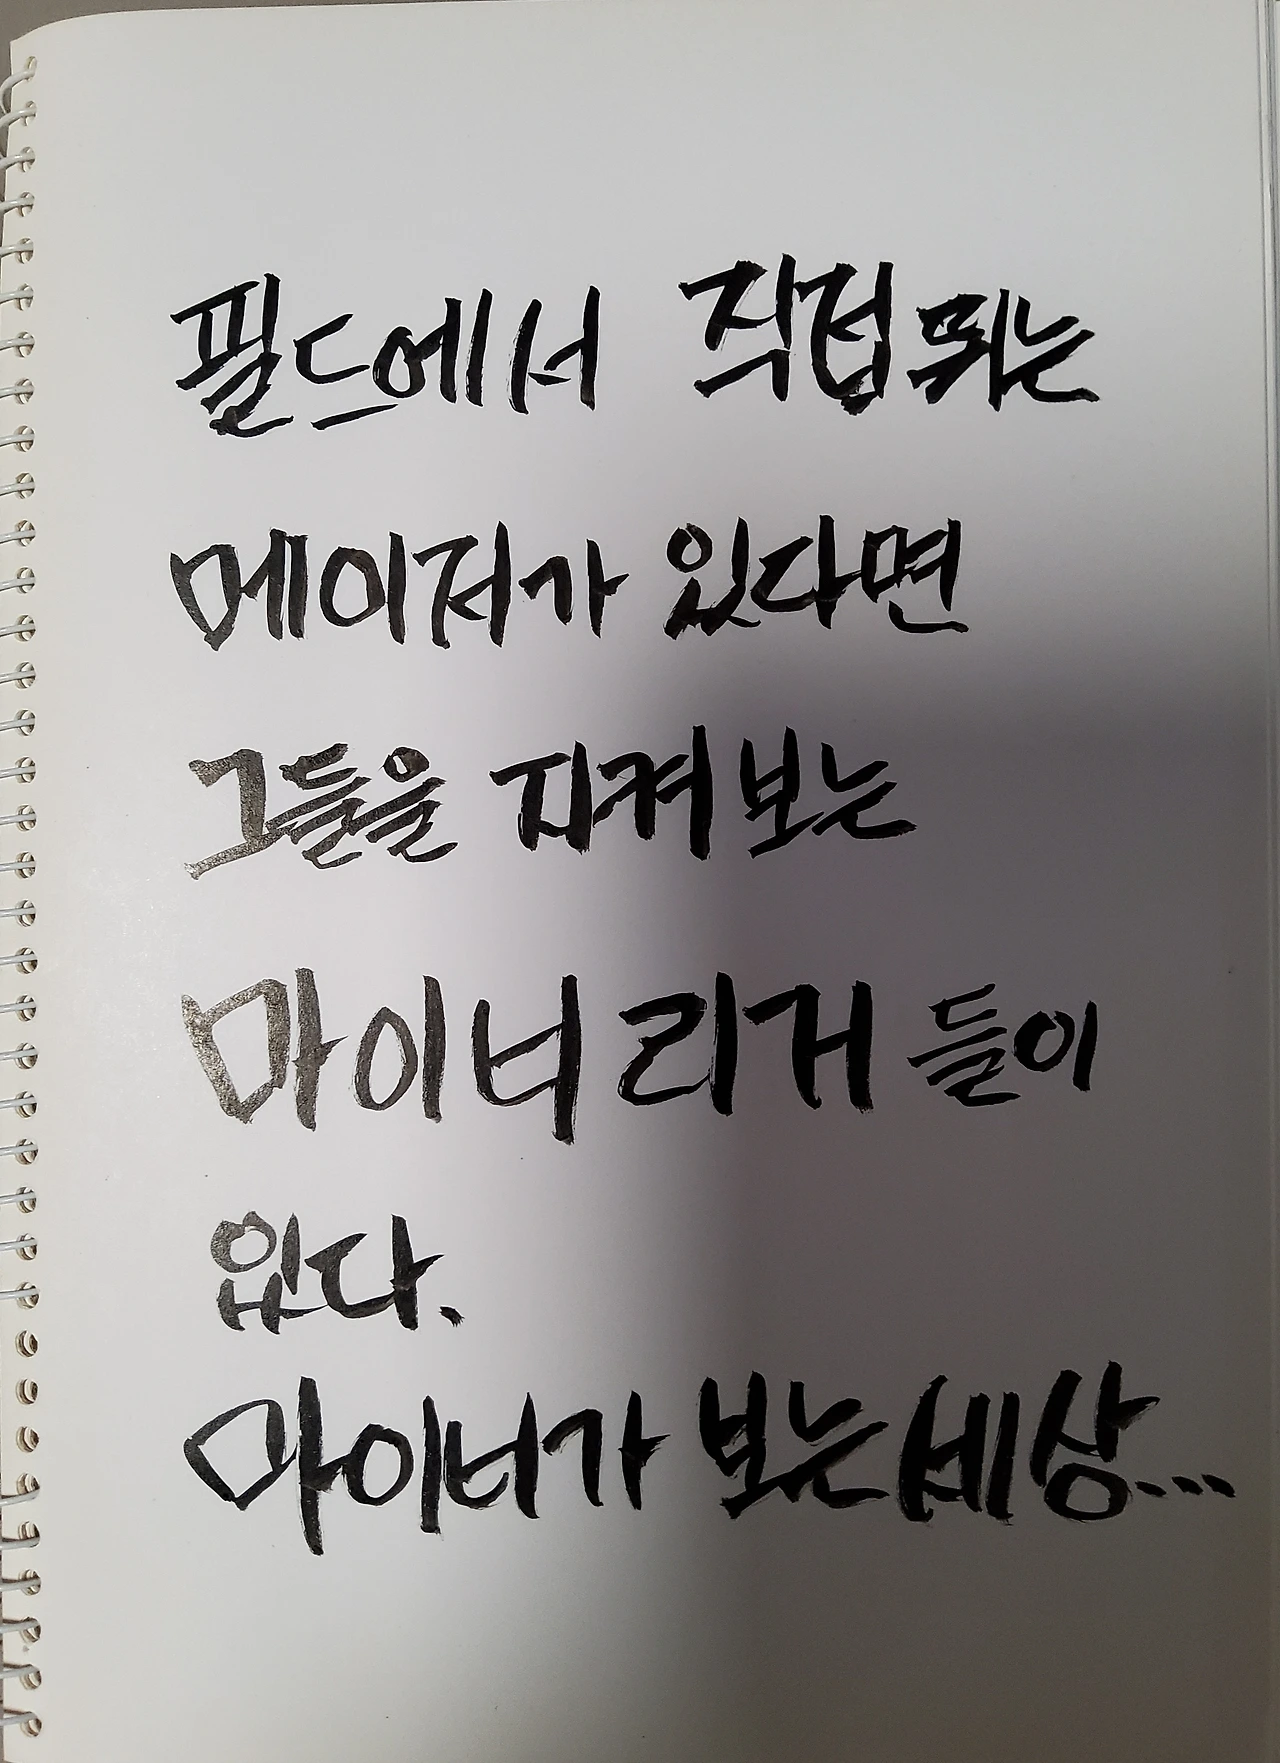 필드에서 직접 뛰는
메이저가 있다면
그들을 지켜보는
마이너리거들이
없다.
마이너가 보는 세상...